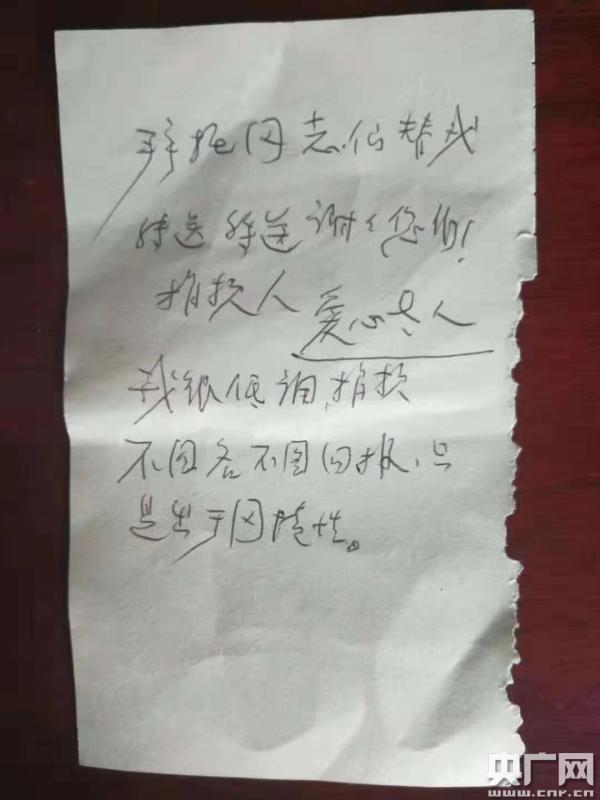 拜托同志们替我
转送转送谢谢您们!
捐款人 爱心老人
我很低调,捐款
不图名不图回报,只
是出于
央广网
www.cnr.cn